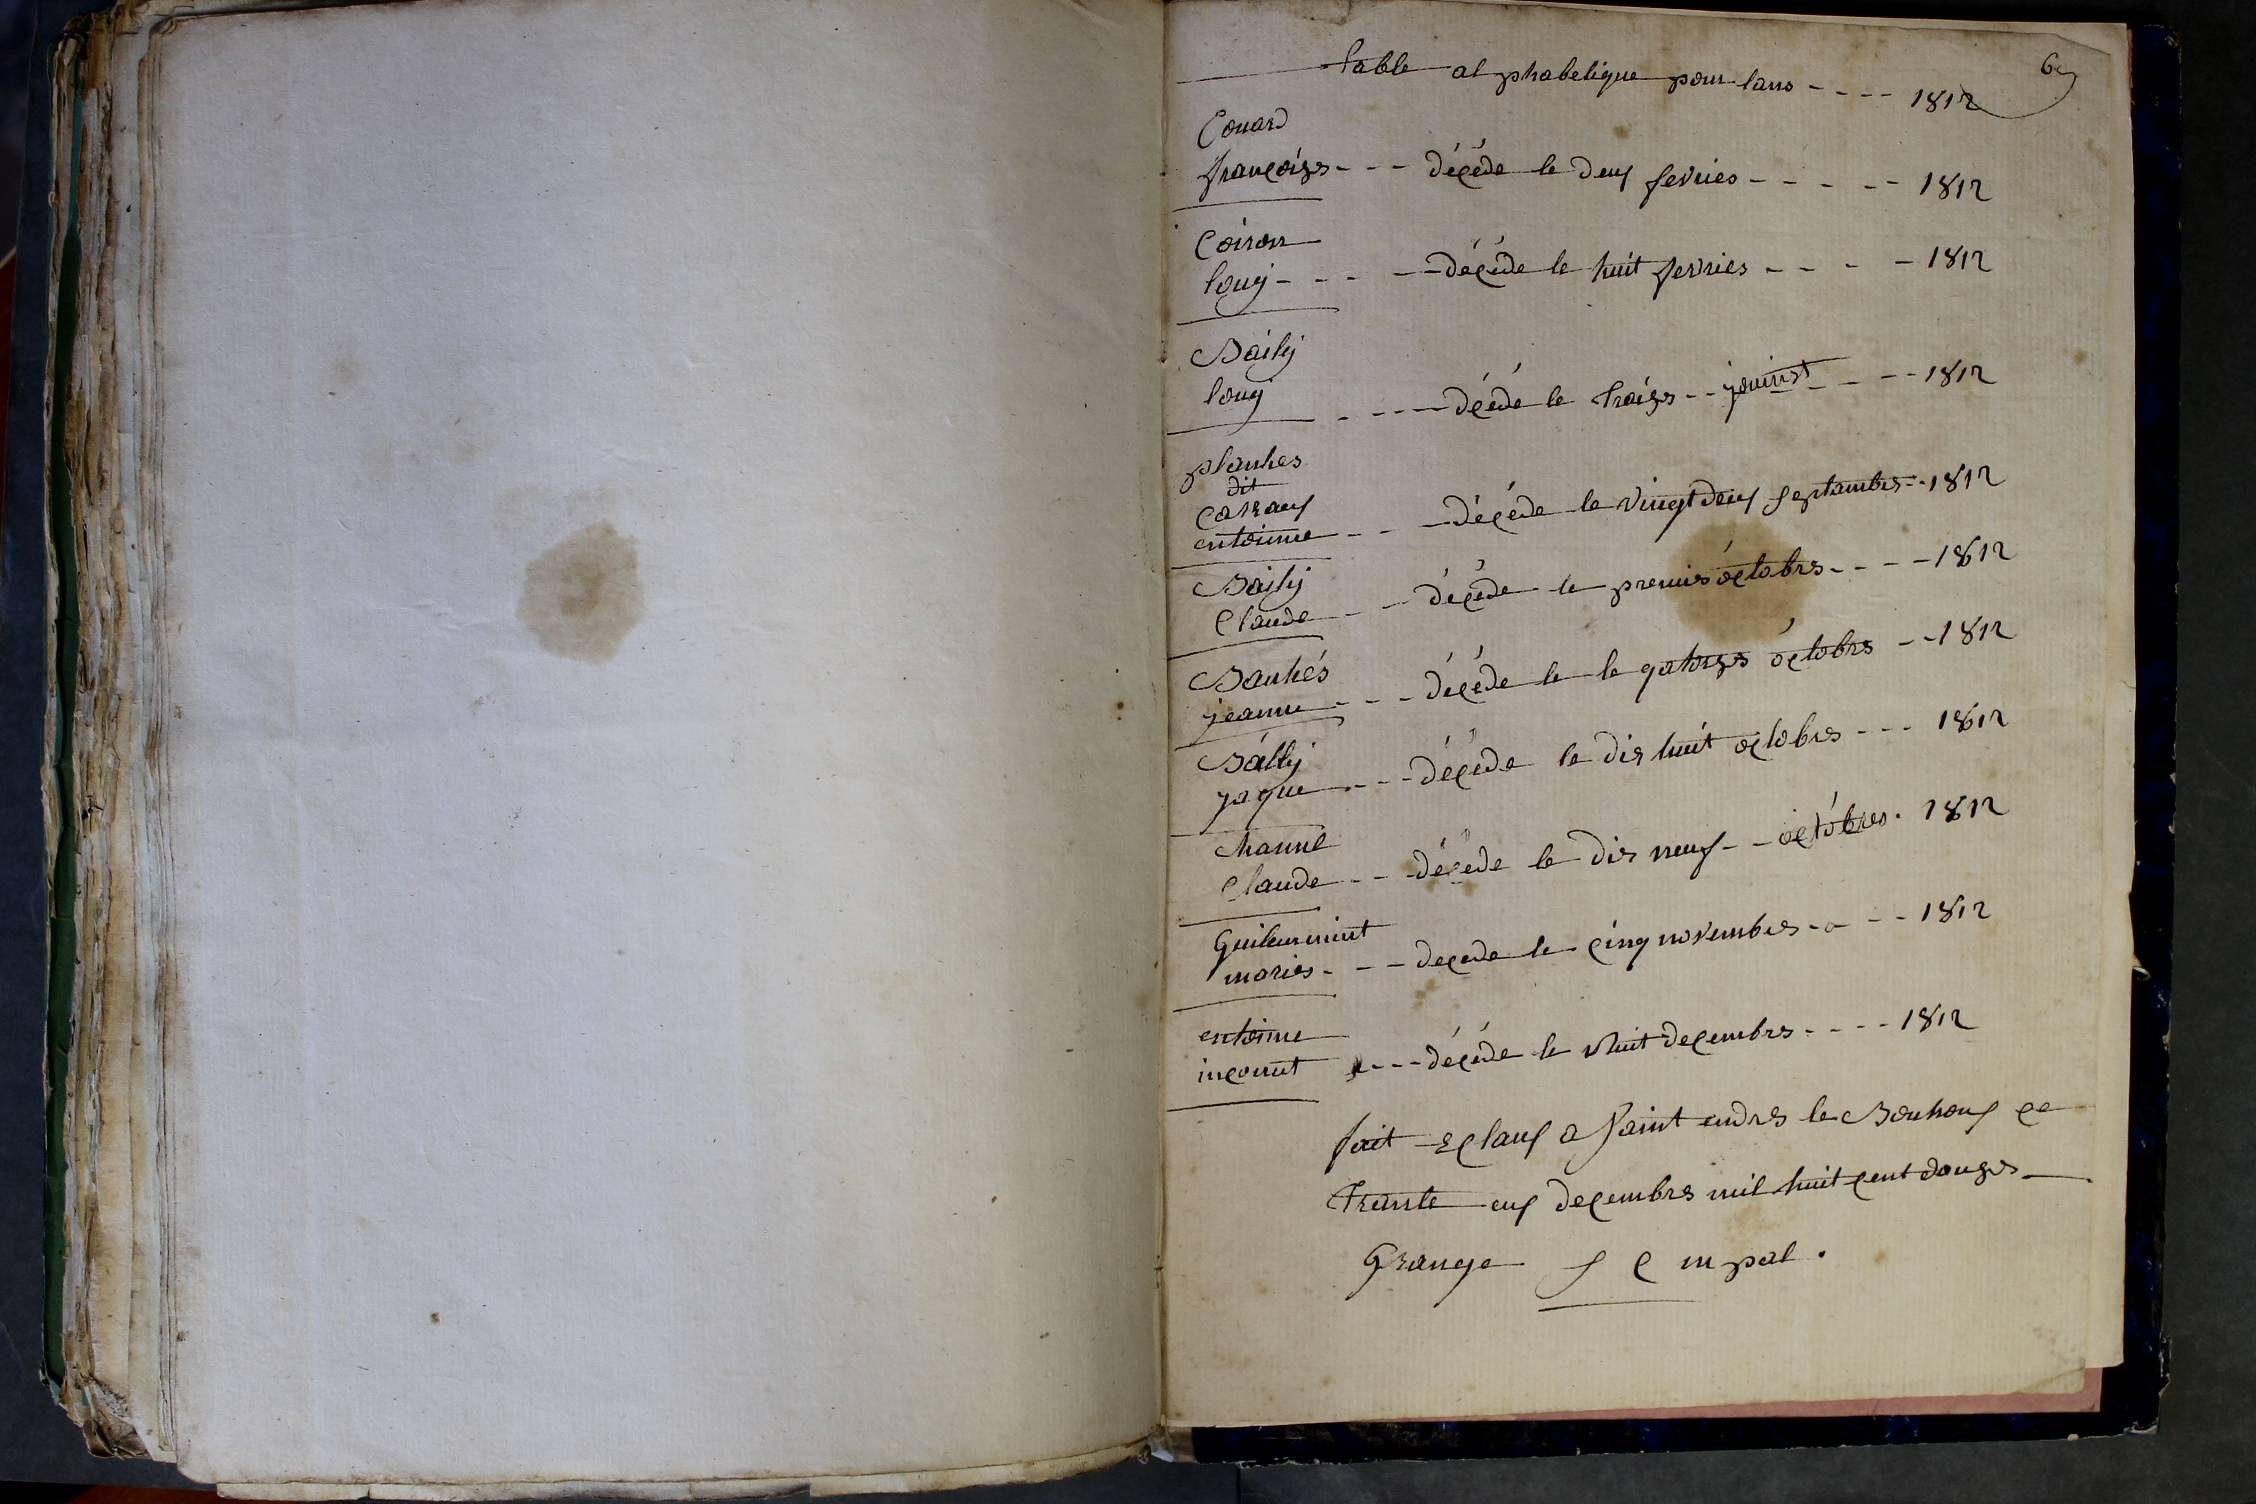 table alphabetique pour lans - - - - 1812
Couard
françoises - - - décéde le deux fevries - - - - - 1812
Coiron
louij - - - - décéde le huit fevries - - - - 1812
Bailij
louij - - - - décéde le traizes - - jouinst - - - - 1812
planhes
dit
entoinne - - - décéde le vingt deux septambres - - 1812
Bailij
Claude - - - décéde le premiés octobres - - - - 1812
Banhés
jeanne - - - - décéde le le qatorzes octobrs - - 1812
Bállij
jaque - - - - décéde le dis huit octobres - - - 1812
Claude - - - décéde le dis neuf - - octóbres . 1812
maries - - - - decede le cinq novembres - - - - 1812
entoinne
inconut - - - décéde le vhuit decembrs - - - - 1812
fait eclaux a saint andres le Bouhoux ce
trante eux decembres mil huit cent douzes
Grange